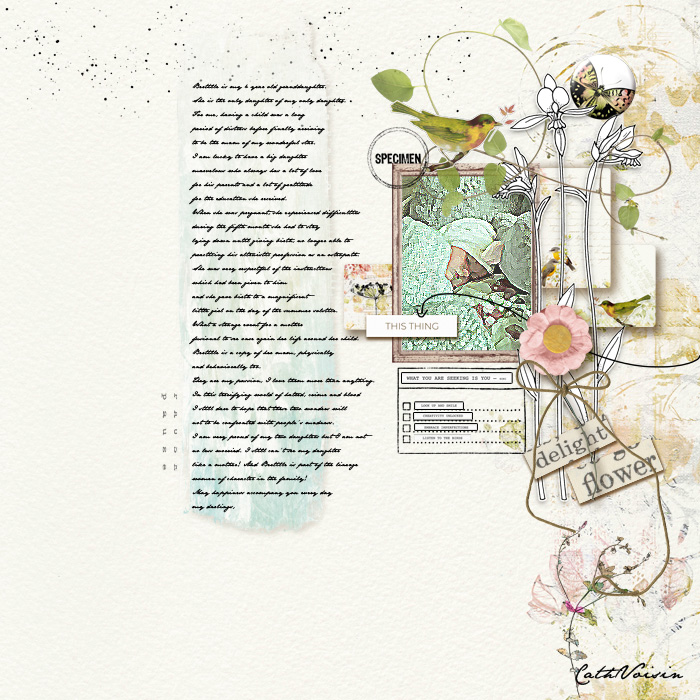 is my 4 year old granddaughter.
She is the only daughter of my only daughter.
For me, having a child was a long
period of distress before finally arriving
to be the mum of my wonderful star.
I am lucky to have a big daughter
marvelous who always has a lot of love
for his parents and a lot of gratitude
for the education she received.
When she was pregnant she experienced difficulties
during the fifth month she had to stay
lying down until giving birth, no longer able to
practice his profession as an osteopath.
She was very respectful of the instructions
which had been given to him
and she gave birth to a magnificent
little girl on the day of the summer solstice.
What a strange event for a mother
to see once again the life around her child.
is a copy of her mum, physically
and behaviorally too.
They are my passion, I love them more than anything.
In this terrifying world of hatred, crime and blood
I still dare to hope that their two wonders will
not to be confronted with people's madness.
I am very proud of my two daughters but I am not
no less worried. I still can't see my daughter
like a mother! And is part of the lineage
women of character in the family!
May happiness accompany you every day
my darlings.
SPECIMEN
THIS THING
WHAT YOU ARE SEEKING IS YOU —
LOOK UP AND SMILE
CREATIVITY UNLOCKED
EMBRACE IMPERFECTIONS
LISTEN TO THE BIRDS
delight
flower
CathVoisin